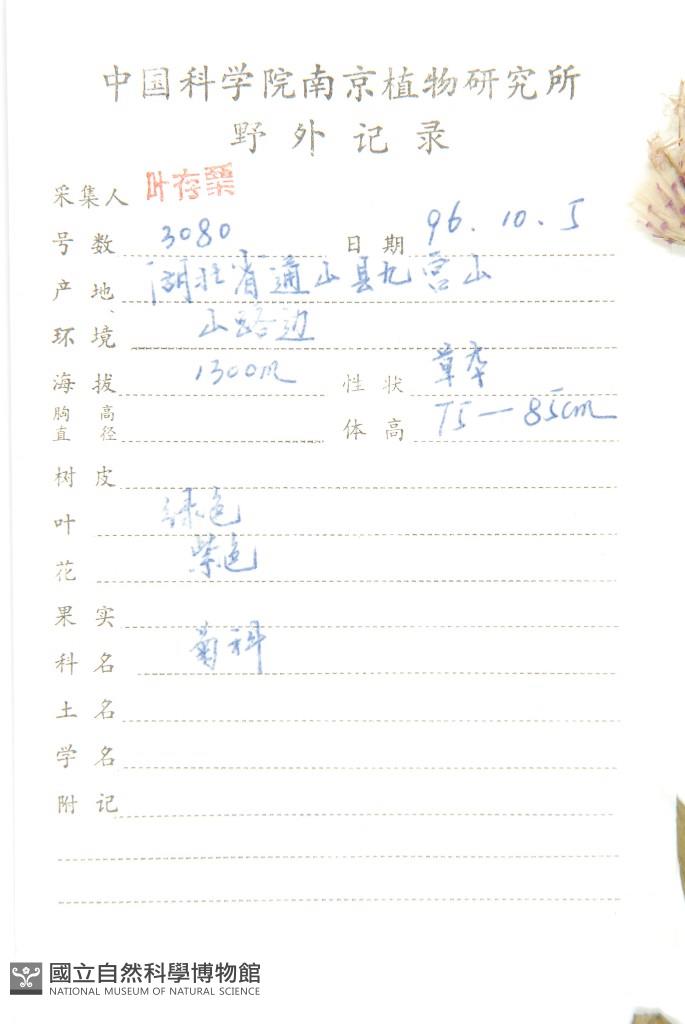 中国科学院南京植物研究所
野外记录
采集人 叶存粟
号数 3080 日期 96.10.5
产地 湖北省通山县九宫山
环境 山路边
海拔 1300m 性状 草本
胸高直径 体高 75—85cm
树皮
叶 绿色
花 紫色
果实
科名 菊科
土名
学名
附记
國立自然科學博物館
NATIONAL MUSEUM OF NATURAL SCIENCE